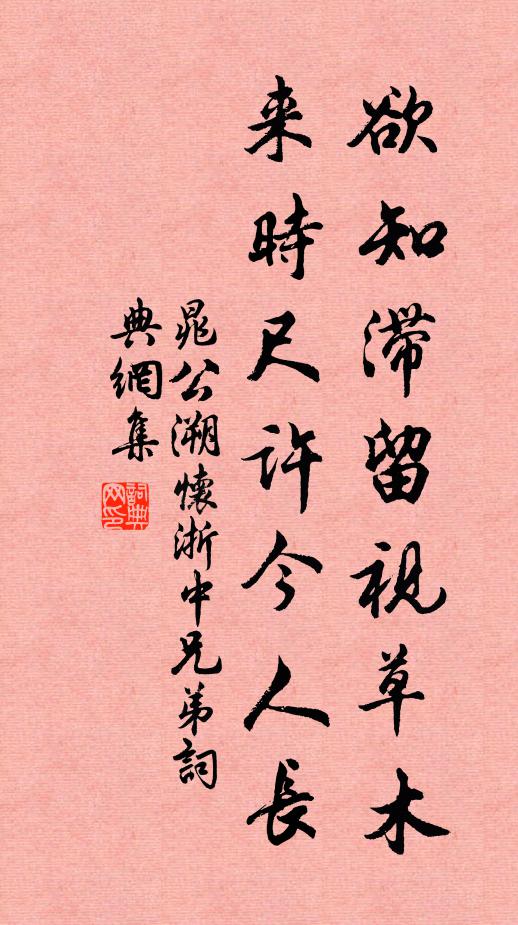 欲知滞留視草木
来時尺許今人長
晁公溯懷浙中兄弟詞
典網集
詞典
网印